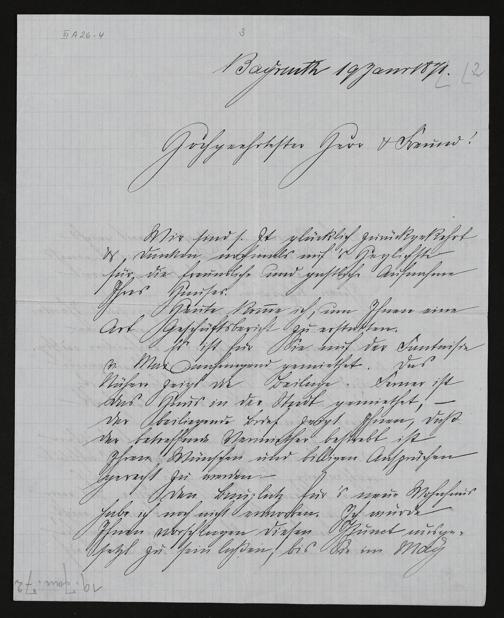 III A 26-4
3
Bayreuth 19 Janr 1871.
[2
Hochgeehrtester Herr & Freund!
Wir sind s. Zt glücklich zurückgekehrt
&, danken nochmals auf's Herzlichste
für die freundliche und gastliche Aufnahme
Ihres Hauses.
Heute komme ich, um Ihnen eine
Art Geschäftsbericht zu erstatten.
Es ist für Sie auf der Fantaisie
gemiethet. Das
Nähere zeigt die Beilage. Ferner ist
das Haus in der Stadt gemiethet, —
der beiliegende Brief zeigt Ihnen, daß
der betreffende Vermiether bestrebt ist
Ihren Wünschen und billigen Ansprüchen
gerecht zu werden —
Den Bauplatz für's neue Wohnhaus
habe ich noch nicht erworben. Ich würde
Ihnen vorschlagen diesen Punct ausge-
setzt zu sein lassen, bis Sie im May
19. Jan. 72